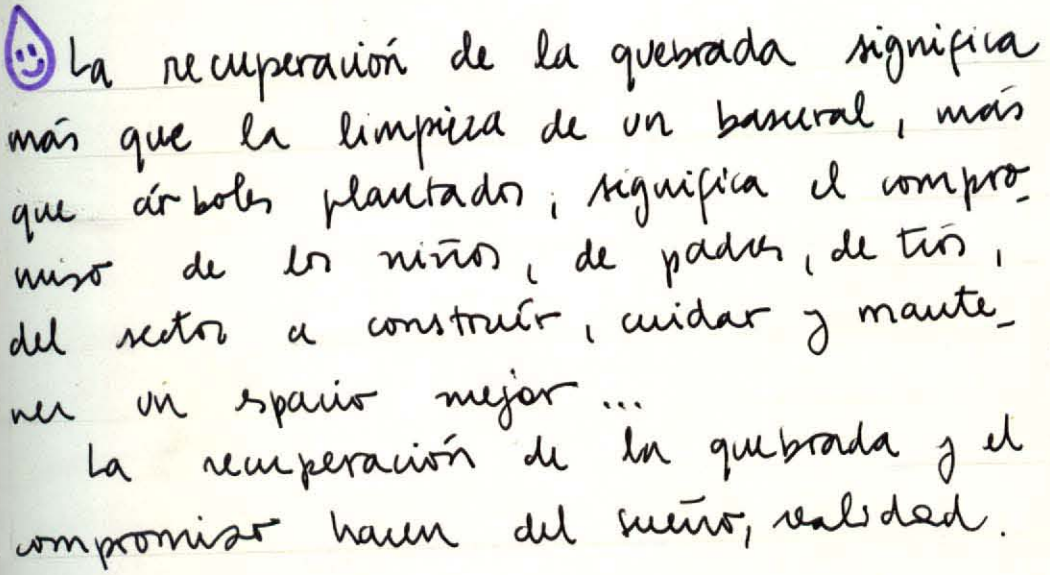 La recuperación de la quebrada significa
más que la limpieza de un basural, más
que árboles plantados; significa el compro-
miso de los niños, de padres, de tíos,
del sector a construír, cuidar y mante-
ner un espacio mejor...
La recuperación de la quebrada y el
compromiso hacen del sueño, realidad.